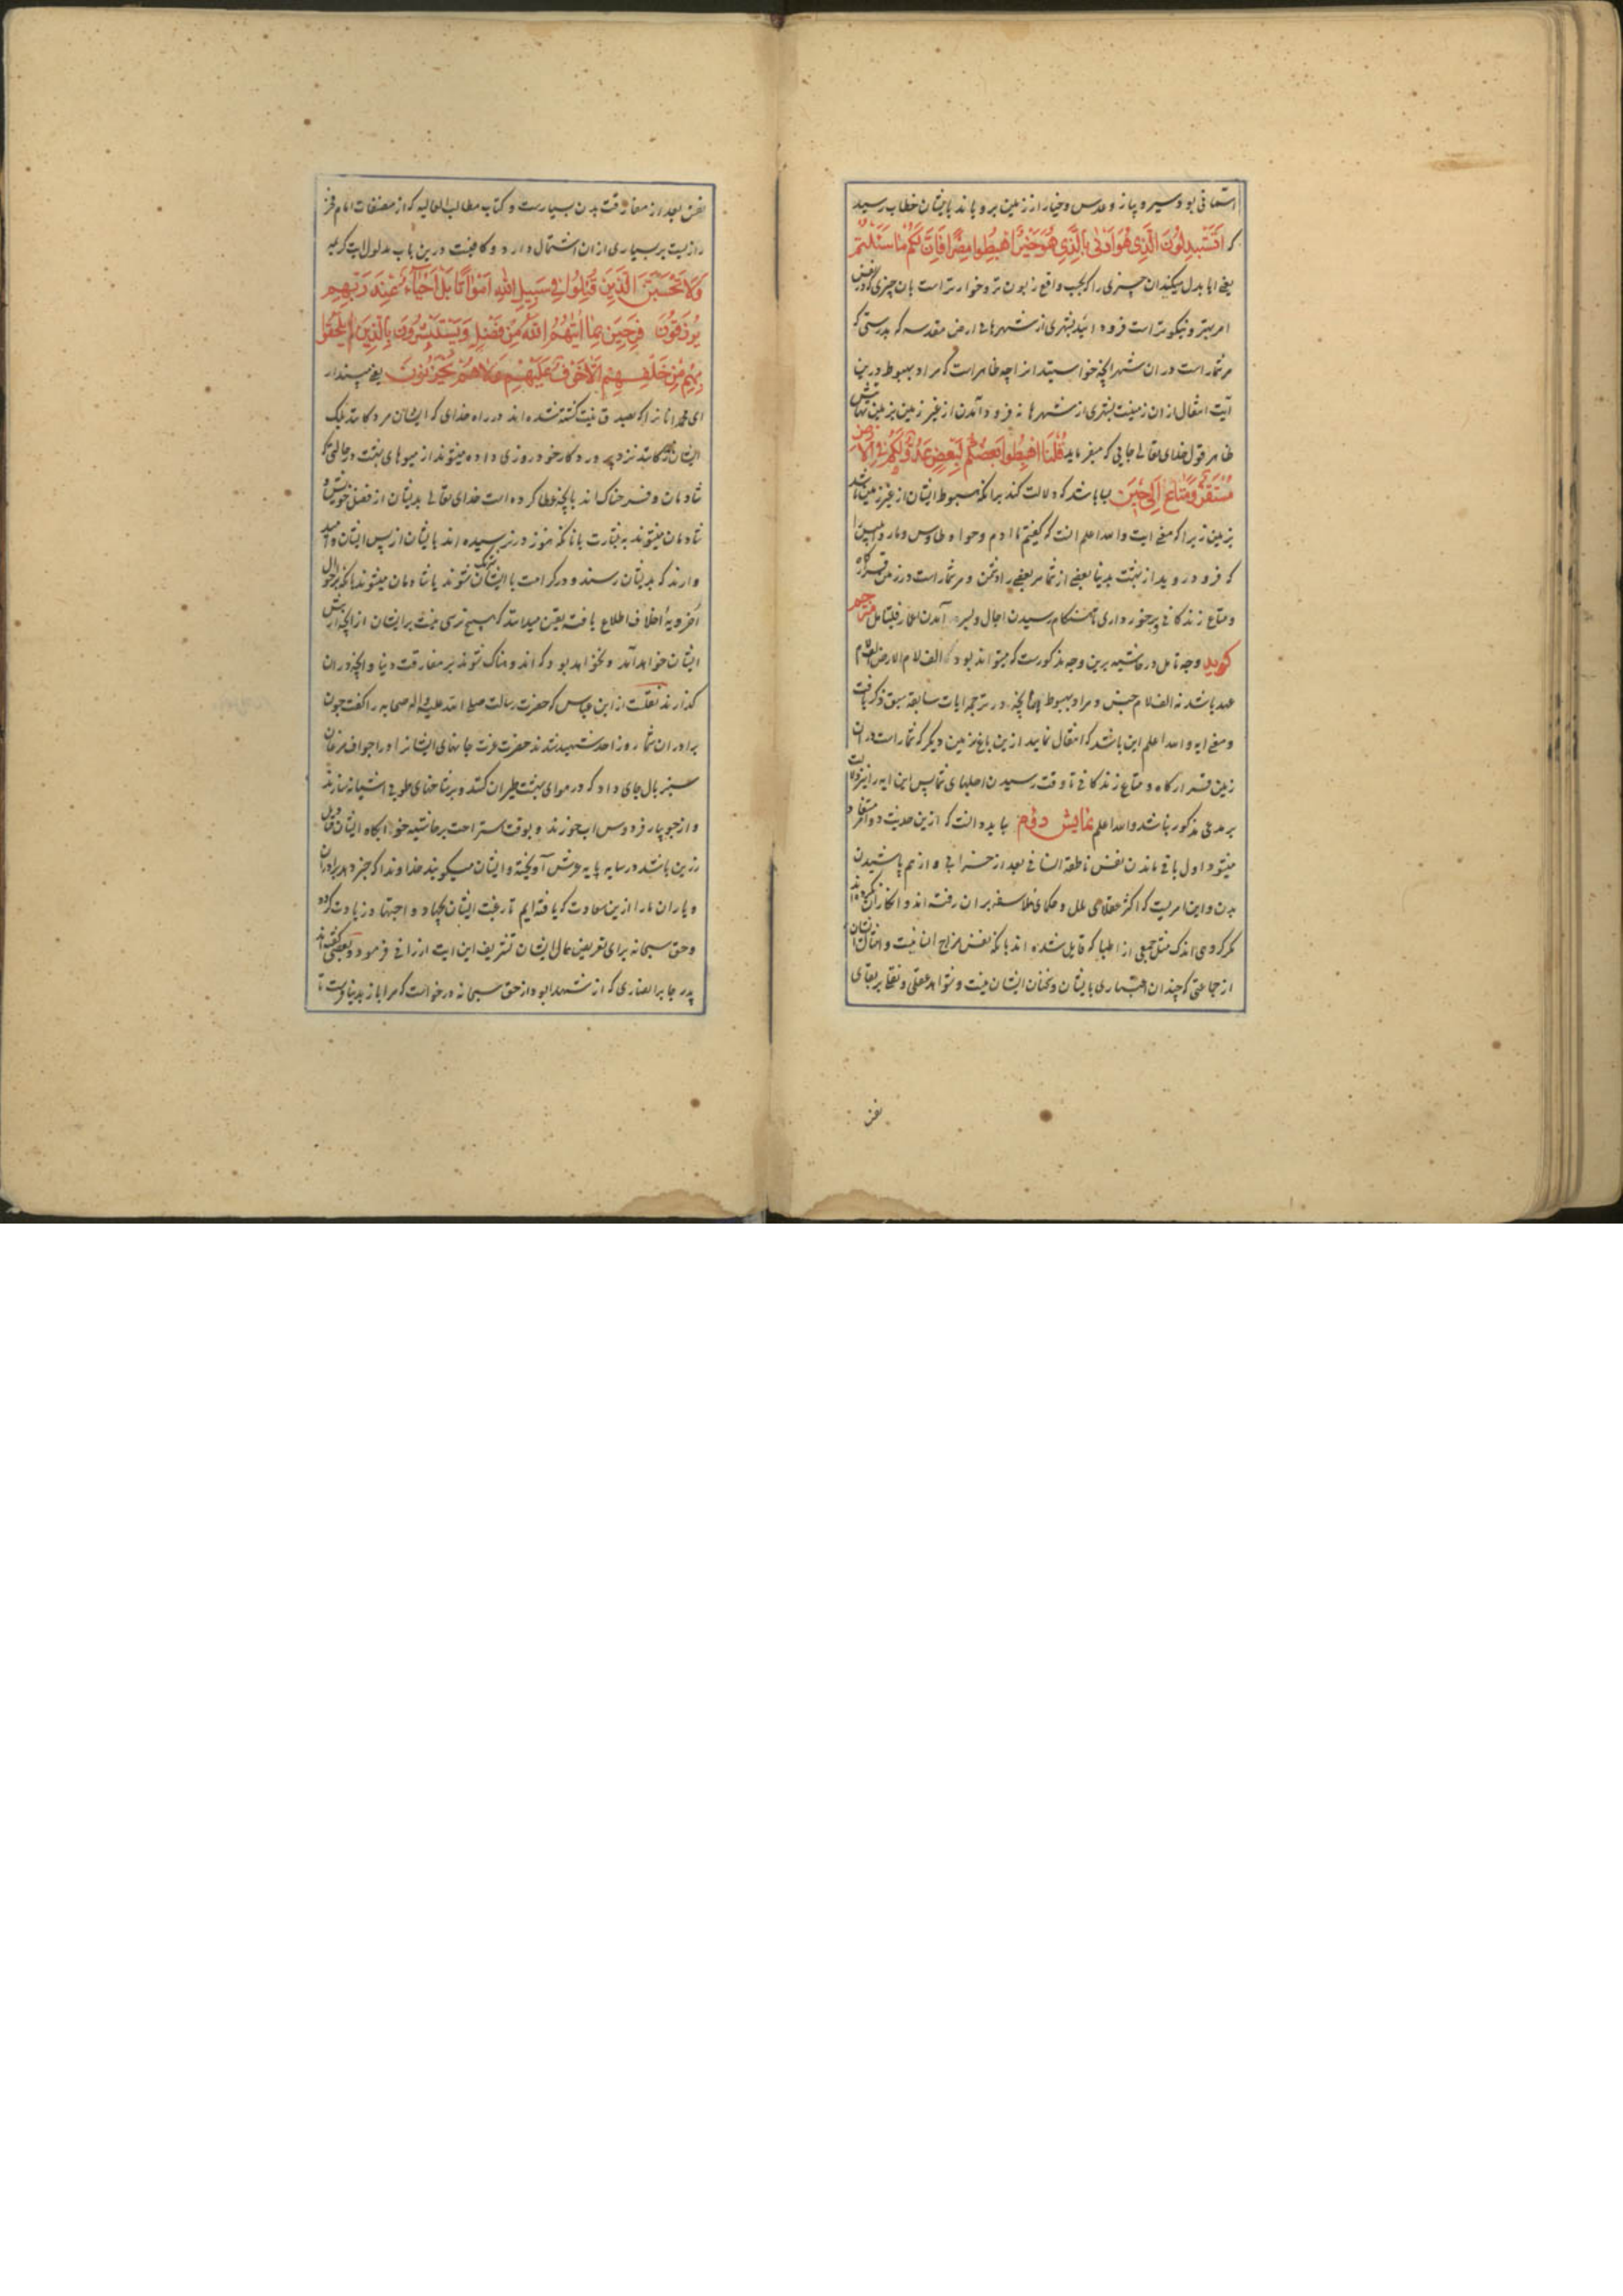 استعافی بو و سیر و پیاز و عدس و خیار از زمین برویاند بایشان خطاب رسید
که اتستبدلون الذی هو ادنی بالذی هو خیر اهبطوا مصرا فان لکم ما سئلتم
یعنی ایا بدل میکنید ان چیزی را که بحسب واقع زبون تر و خوارتر است بان چیزی که در نفس
امر بهتر و نیکوتر است فرود ائید بشهری از شهرهای ارض مقدسه که بدرستی که
مر شمار است در ان شهر انچه خواستید از اچه ظاهر است که مراد بهبوط درین
آیت انتقال از ان زمینست بشهری از شهرها نه فرود آمدن از غیر زمین بزمین
ظاهر قول خدای تعالی جایی که میفرماید قلنا اهبطوا بعضکم لبعض عدو ولکم فی الارض
مستقر ومتاع الی حین بیاباشد که دلالت کند برانکه هبوط ایشان از غیر زمین باشد
بزمین زیرا که معنی ایت والله اعلم انست که گفتیم ما ادم و حوا و طاوس و مار و ابلیس را
که فرو روید از بهشت بدنیا بعضی از شما مر بعضی را دشمن و مر شمار است در زمین قرارگاه
و متاع زندگانی و برخورداری تا هنگام رسیدن اجال و بسر آمدن اعمار فلیتامل مترجم
گوید وجه تامل در حاشیه برین وجه مذکورست که میتواند بود که الف لام الارض لام
عهد باشد نه الف لام جنس و مراد بهبوط چنانچه در ترجمه ایات سابقه سبق ذکر یافت
و معنی ایه والله اعلم این باشد که انتقال نمایید ازین باغ بزمین دیگر که شمار است در ان
زمین قرارگاه و متاع زندگانی تا وقت رسیدن اجلهای شما پس این ایه را نیز دلالت
بر مدعی مذکور نباشد والله اعلم نمایش دوم بباید دانست که ازین حدیث دو امر مستفاد
میشود اول باقی ماندن نفس ناطقه انسانی بعد از خرابی و از هم پاشیدن
بدن و این امریست که اکثر عقلای ملل و حکمای فلاسفه بران رفته اند و انکار ان نکرده اند
مگر گروهی اندک مثل جمعی از اطبا که قایل شده اند بانکه نفس مزاج انسانیست و امثال ایشان
از جماعتی که چندان اعتباری بایشان و سخنان ایشان نیست و شواهد عقلی و نقلی بر بقای
نفس
نفس بعد از مفارقت بدن بسیارست و کتاب مطالب العالیه که از مصنفات امام فخر
رازیست بر بسیاری از ان اشتمال دارد و کافیست درین باب مدلول ایت کریمه
ولا تحسبن الذین قتلوا فی سبیل الله امواتا بل احیاء عند ربهم
یرزقون فرحین بما اتیهم الله من فضله ویستبشرون بالذین لم یلحقوا
بهم من خلفهم الا خوف علیهم ولا هم یحزنون یعنی مپندار
ای محمد انانرا که بصدق نیت کشته شده اند در راه خدای که ایشان مردگانند بلکه
ایشان زندگانند نزد پروردگار خود روزی داده میشوند از میوهای بهشت در حالتی که
شادمان و فرحناک اند بانچه عطا کرده است خدای تعالی بدیشان از فضل خویش و
شادمان میشوند به بشارت بانانکه هنوز در نرسیده اند بایشان از پس ایشان و امید
دارند که بدیشان رسند و در کرامت با ایشان شریک شوند یا شادمان میشوند بانکه بر احوال
اخرویهٔ اخلاف اطلاع یافته یقین میدانند که هیچ ترسی نیست بر ایشان از انچه در پیش
ایشان خواهد آمد و نخواهد بود که اندوهناک شوند بر مفارقت دنیا و انچه در ان
گذارند نقلست از ابن عباس که حضرت رسالت صلی الله علیه واله صحابه را گفت چون
برادران شما روز احد شهید شدند حضرت عزت جانهای ایشانرا در اجواف مرغان
سبز بال جای داد که در هوای بهشت طیران کنند و بر شاخهای طوبی اشیانه سازند
و از جویبار فردوس اب خورند و بوقت استراحت بر حاشیه خوابگاه ایشان قنادیل
زرین باشد در سایه پایه عرش آویخته و ایشان میگویند خداوندا که خبر دهد برادران
و یاران ما را ازین سعادت که یافته ایم تا رغبت ایشان بجهاد و اجتهاد زیادت گردد
و حق سبحانه برای تعریض حال ایشان تشریف این ایت ارزانی فرمود و بعضی گفته اند
پدر جابر انصاری که از شهدا بود از حق سبحانه درخواست که مرا باز بدنیا فرست تا